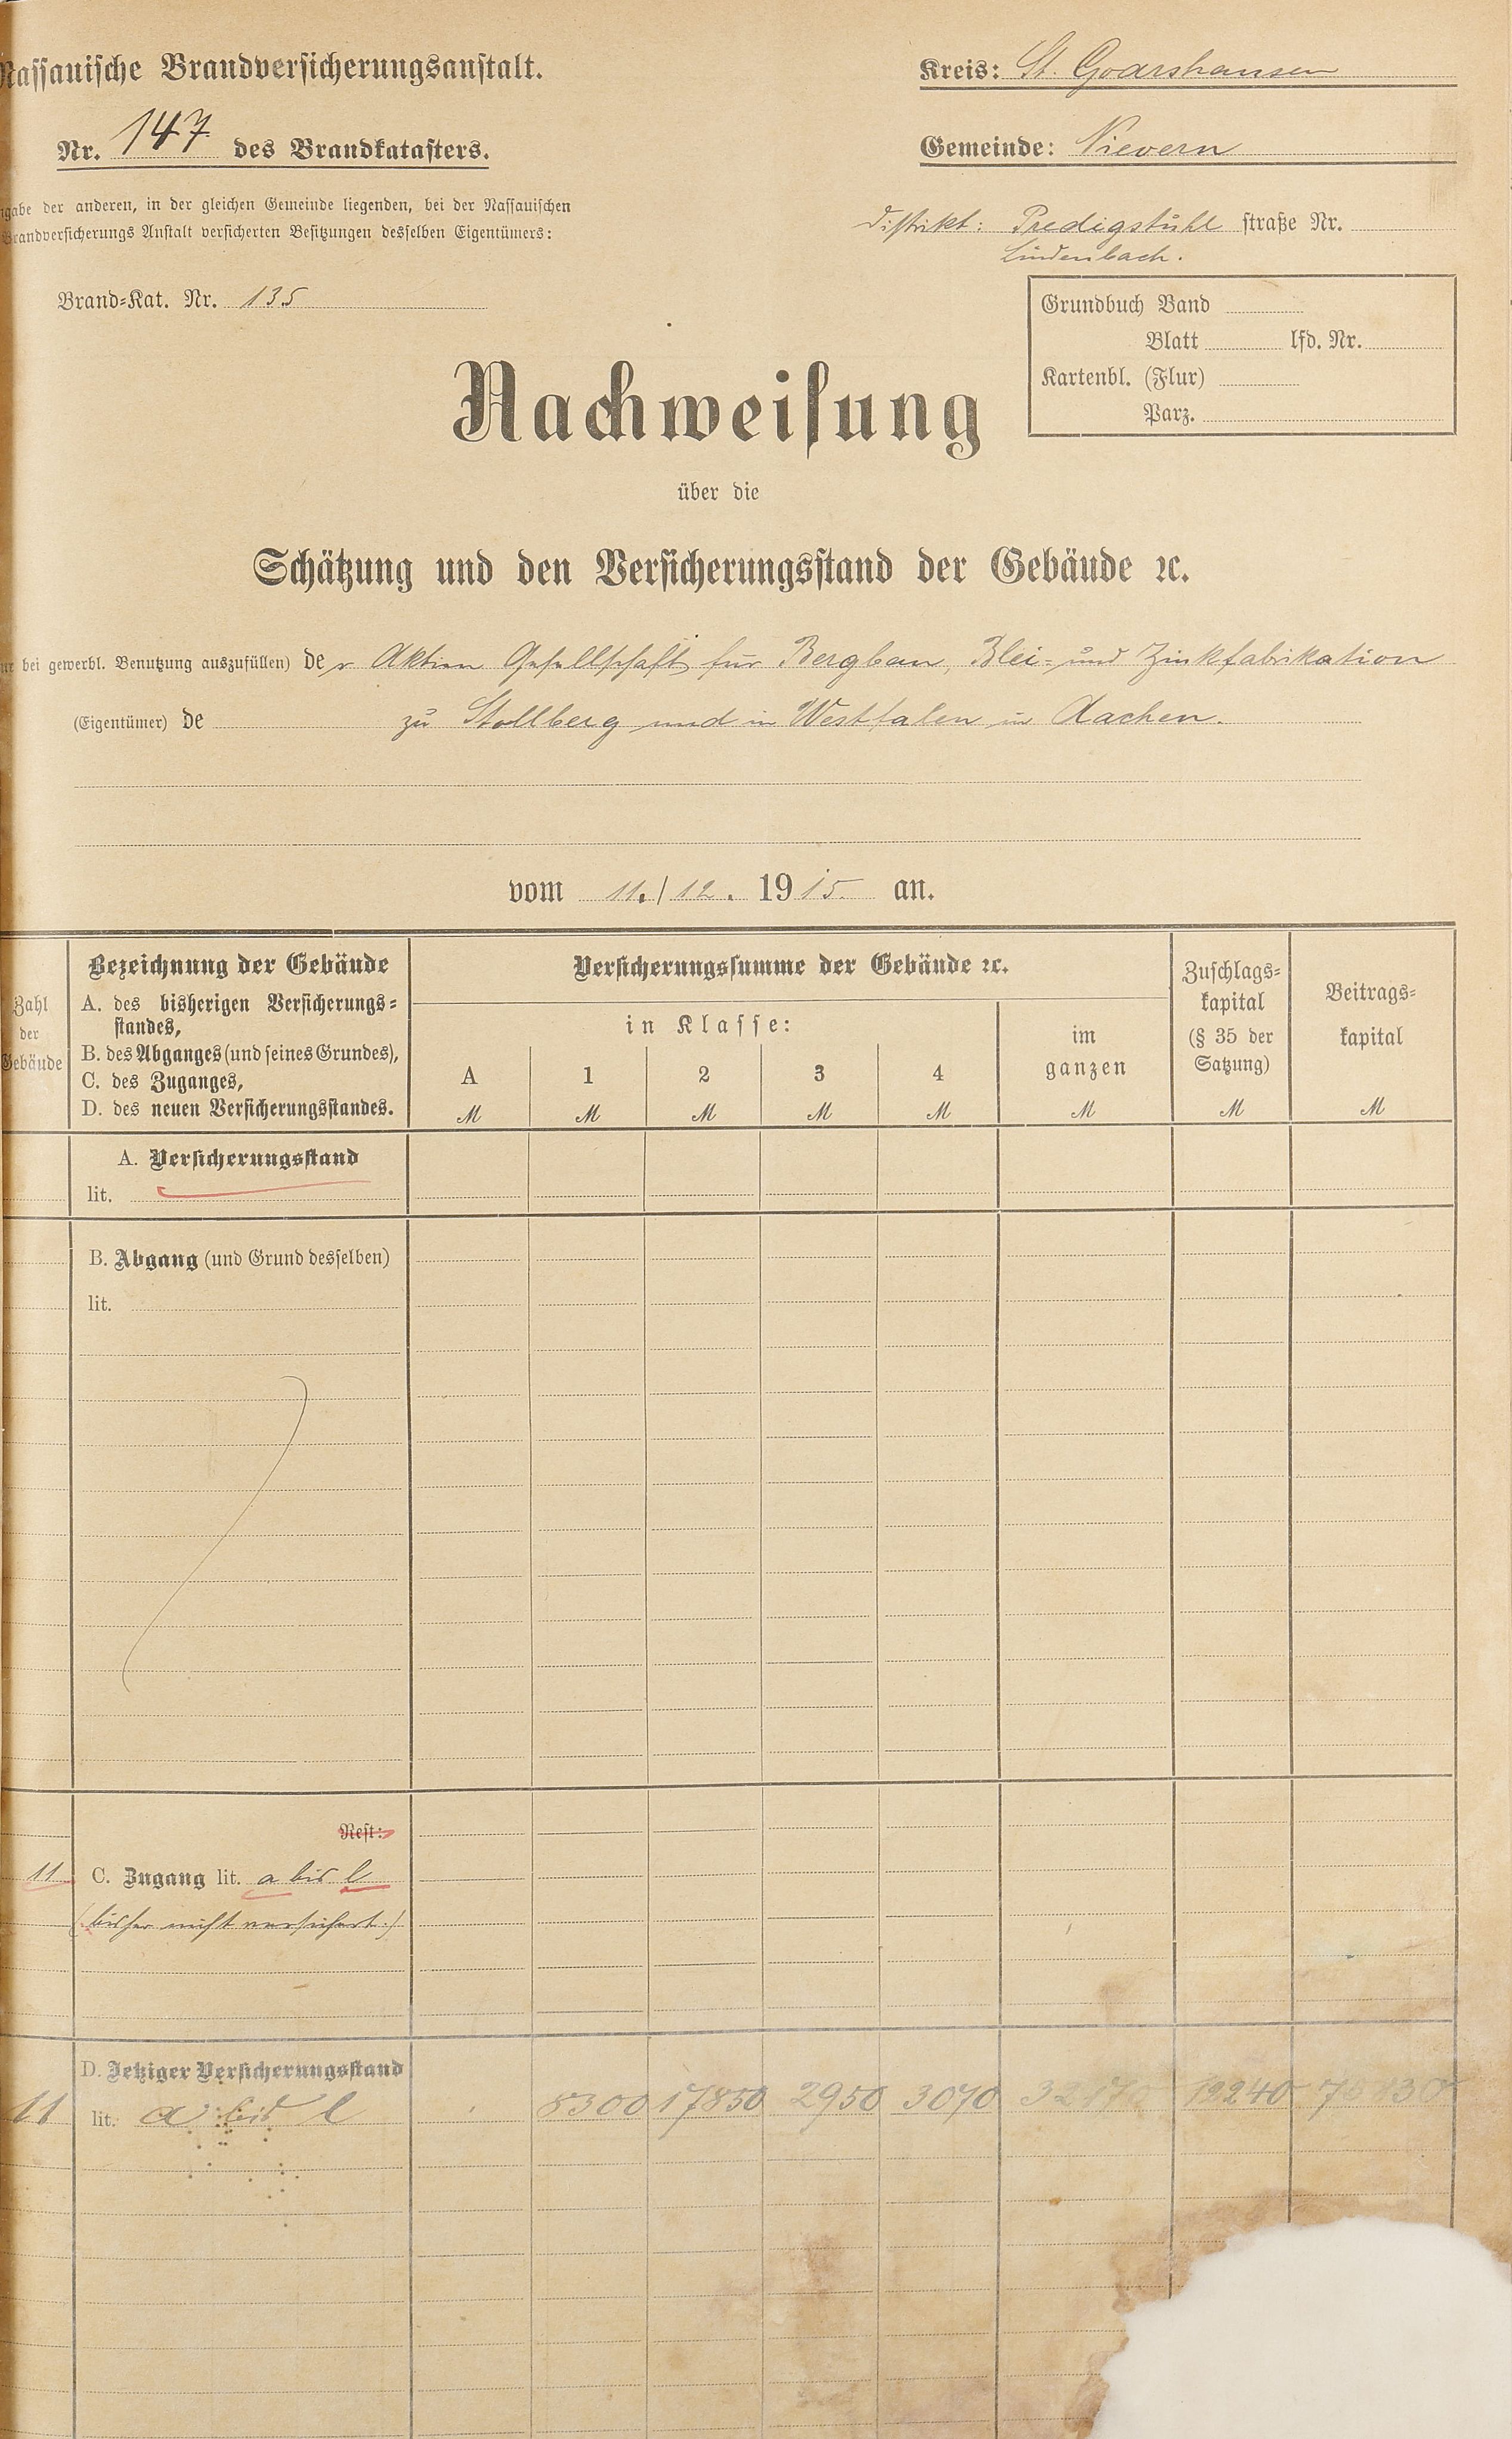 Nassauische Brandversicherungsanstalt.
Kreis: St. Goarshausen
Nr. 147 des Brandkatasters.
Gemeinde: Nievern
gabe der anderen, in der gleichen Gemeinde liegenden, bei der Nassauischen
Brandversicherungs Anstalt versicherten Besitzungen desselben Eigentümers:
Distrikt: Predigstuhl straße Nr.
Lindenbach.
Brand-Kat. Nr. 135
Grundbuch Band
Blatt lfd. Nr.
Kartenbl. (Flur)
Parz.
Nachweisung
über die
Schätzung und den Versicherungsstand der Gebäude ꝛc.
bei gewerbl. Benutzung auszufüllen) der Aktien Gesellschaft für Bergbau, Blei- und Zinkfabrikation
(Eigentümer) de zu Stollberg und in Westfalen in Aachen.
vom 11./12. 1915 an.
Zahl der Gebäude
Bezeichnung der Gebäude
A. des bisherigen Versicherungs-
standes,
B. des Abganges (und seines Grundes),
C. des Zuganges,
D. des neuen Versicherungsstandes.
Versicherungssumme der Gebäude ꝛc.
in Klasse:
A 1 2 3 4
im ganzen
Zuschlags-
kapital
(§ 35 der
Satzung)
Beitrags-
kapital
M M M M M M M M
A. Versicherungsstand
lit.
B. Abgang (und Grund desselben)
lit.
Rest:
11 C. Zugang lit. a bis l
(bisher nicht versichert.)
D. Jetziger Versicherungsstand
11 lit. a bis l 8300 17850 2950 3070 32170 12240